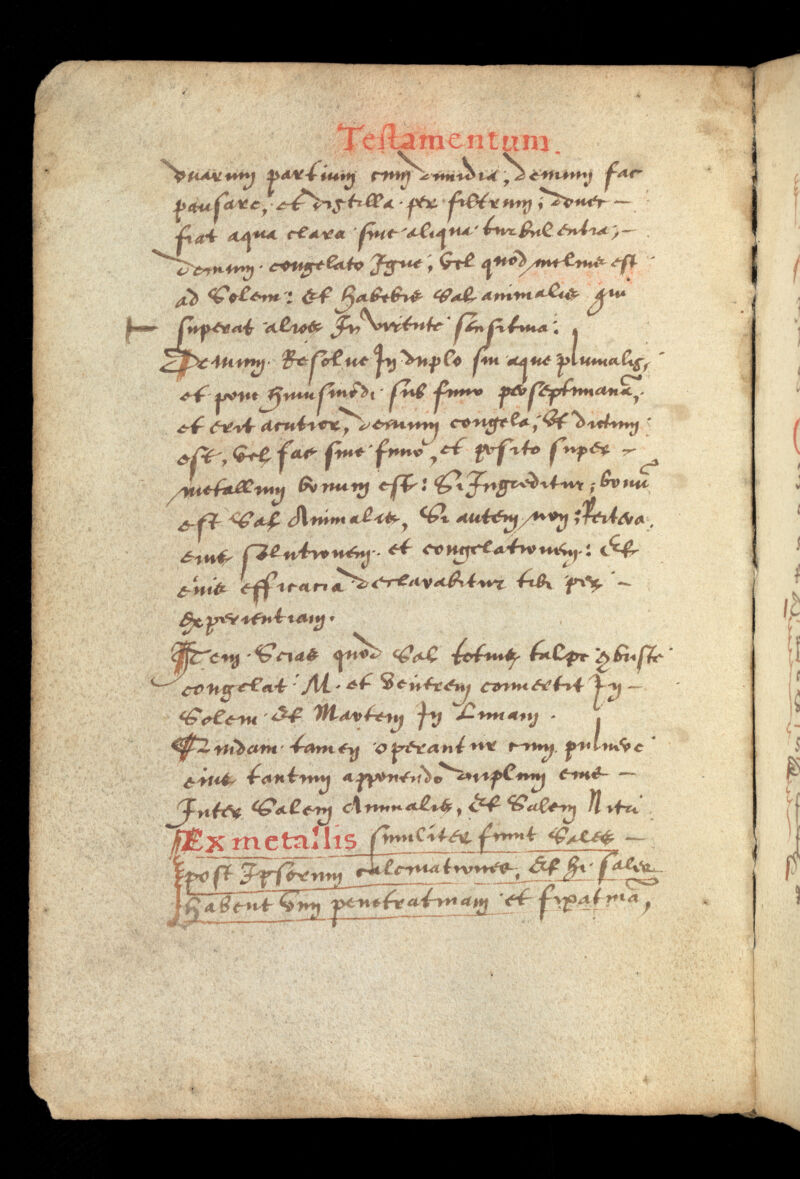 Testamentum.
duarum partium cum dimidia, demum fac
pausare, et distilla per filtrum, donec –
fiat aqua clara sine aliqua turbulentia, –
demum congelato Igne, vel quod melius est
ad Solem: Et habebis Sal animalis qui
superat alios In virtute sensitiva.
Demum Resolve In duplo sui aque pluvialis,
et pone huiusmodi sub fimo per septimanā,
et erit acutior, demum congela, Ut dictum
est, vel fac sine fimo, et posito super –
metallum bonum est: Si Ingreditur, bonū
est Sal Animalis, Si autem non, Reitera
eius solutionem et congelationem: Et
eius efficacia declarabitur tibi per –
Experientiam.
Item Scias quod Sal totius talpe combuste
congelat M. et Venerem convertit In –
Solem Et Martem In Lunam.
Quidam tamen operantur cum pulvere
eius tantum apponendo duplum eius –
Inter Salem Animalis, Et Salem Nitri
Ex metallis similiter fiunt Sales –
post Ipsorum calcinationes, Et hi sales
habent Vim penetrativam et fixativā,